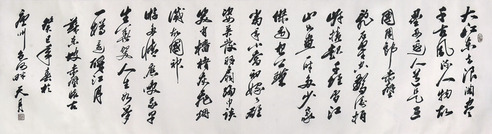 大江東去浪淘盡
千古風流人物故
壘西邊人道是三
國周郎赤壁
亂石穿空驚濤拍
岸捲起千堆雪江
山如畫一時多少豪
傑遙想公瑾
當年小喬初嫁了雄
姿英發羽扇綸巾談
笑間檣櫓灰飛煙
滅故國神
遊多情應笑我早
生華髮人生如夢
一樽還酹江月
蘇東坡赤壁懷古
年於
廣州